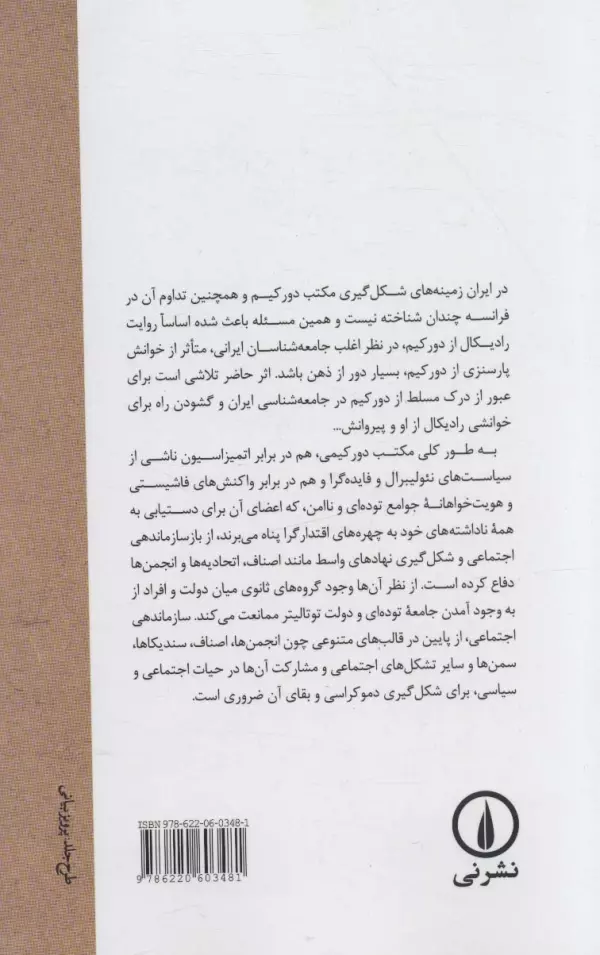 در ایران زمینه‌های شکل‌گیری مکتب دورکیم و همچنین تداوم آن در
فرانسه چندان شناخته نیست و همین مسئله باعث شده اساساً روایت
رادیکال از دورکیم، در نظر اغلب جامعه‌شناسان ایرانی، متأثر از خوانش
پارسنزی از دورکیم، بسیار دور از ذهن باشد. اثر حاضر تلاشی است برای
عبور از درک مسلط از دورکیم در جامعه‌شناسی ایران و گشودن راه برای
خوانشی رادیکال از او و پیروانش...
به طور کلی مکتب دورکیمی، هم در برابر اتمیزاسیون ناشی از
سیاست‌های نئولیبرال و فایده‌گرا و هم در برابر واکنش‌های فاشیستی
و هویت‌خواهانهٔ جوامع توده‌ای و ناامن، که اعضای آن برای دستیابی به
همهٔ ناداشته‌های خود به چهره‌های اقتدارگرا پناه می‌برند، از بازسازماندهی
اجتماعی و شکل‌گیری نهادهای واسط مانند اصناف، اتحادیه‌ها و انجمن‌ها
دفاع کرده است. از نظر آن‌ها وجود گروه‌های ثانوی میان دولت و افراد از
به وجود آمدن جامعهٔ توده‌ای و دولت توتالیتر ممانعت می‌کند. سازماندهی
اجتماعی، از پایین در قالب‌های متنوعی چون انجمن‌ها، اصناف، سندیکاها،
سمن‌ها و سایر تشکل‌های اجتماعی و مشارکت آن‌ها در حیات اجتماعی و
سیاسی، برای شکل‌گیری دموکراسی و بقای آن ضروری است.
طرح جلد: پرویز بیانی
ISBN 978-622-06-0348-1
9 786220 603481
نشرنی